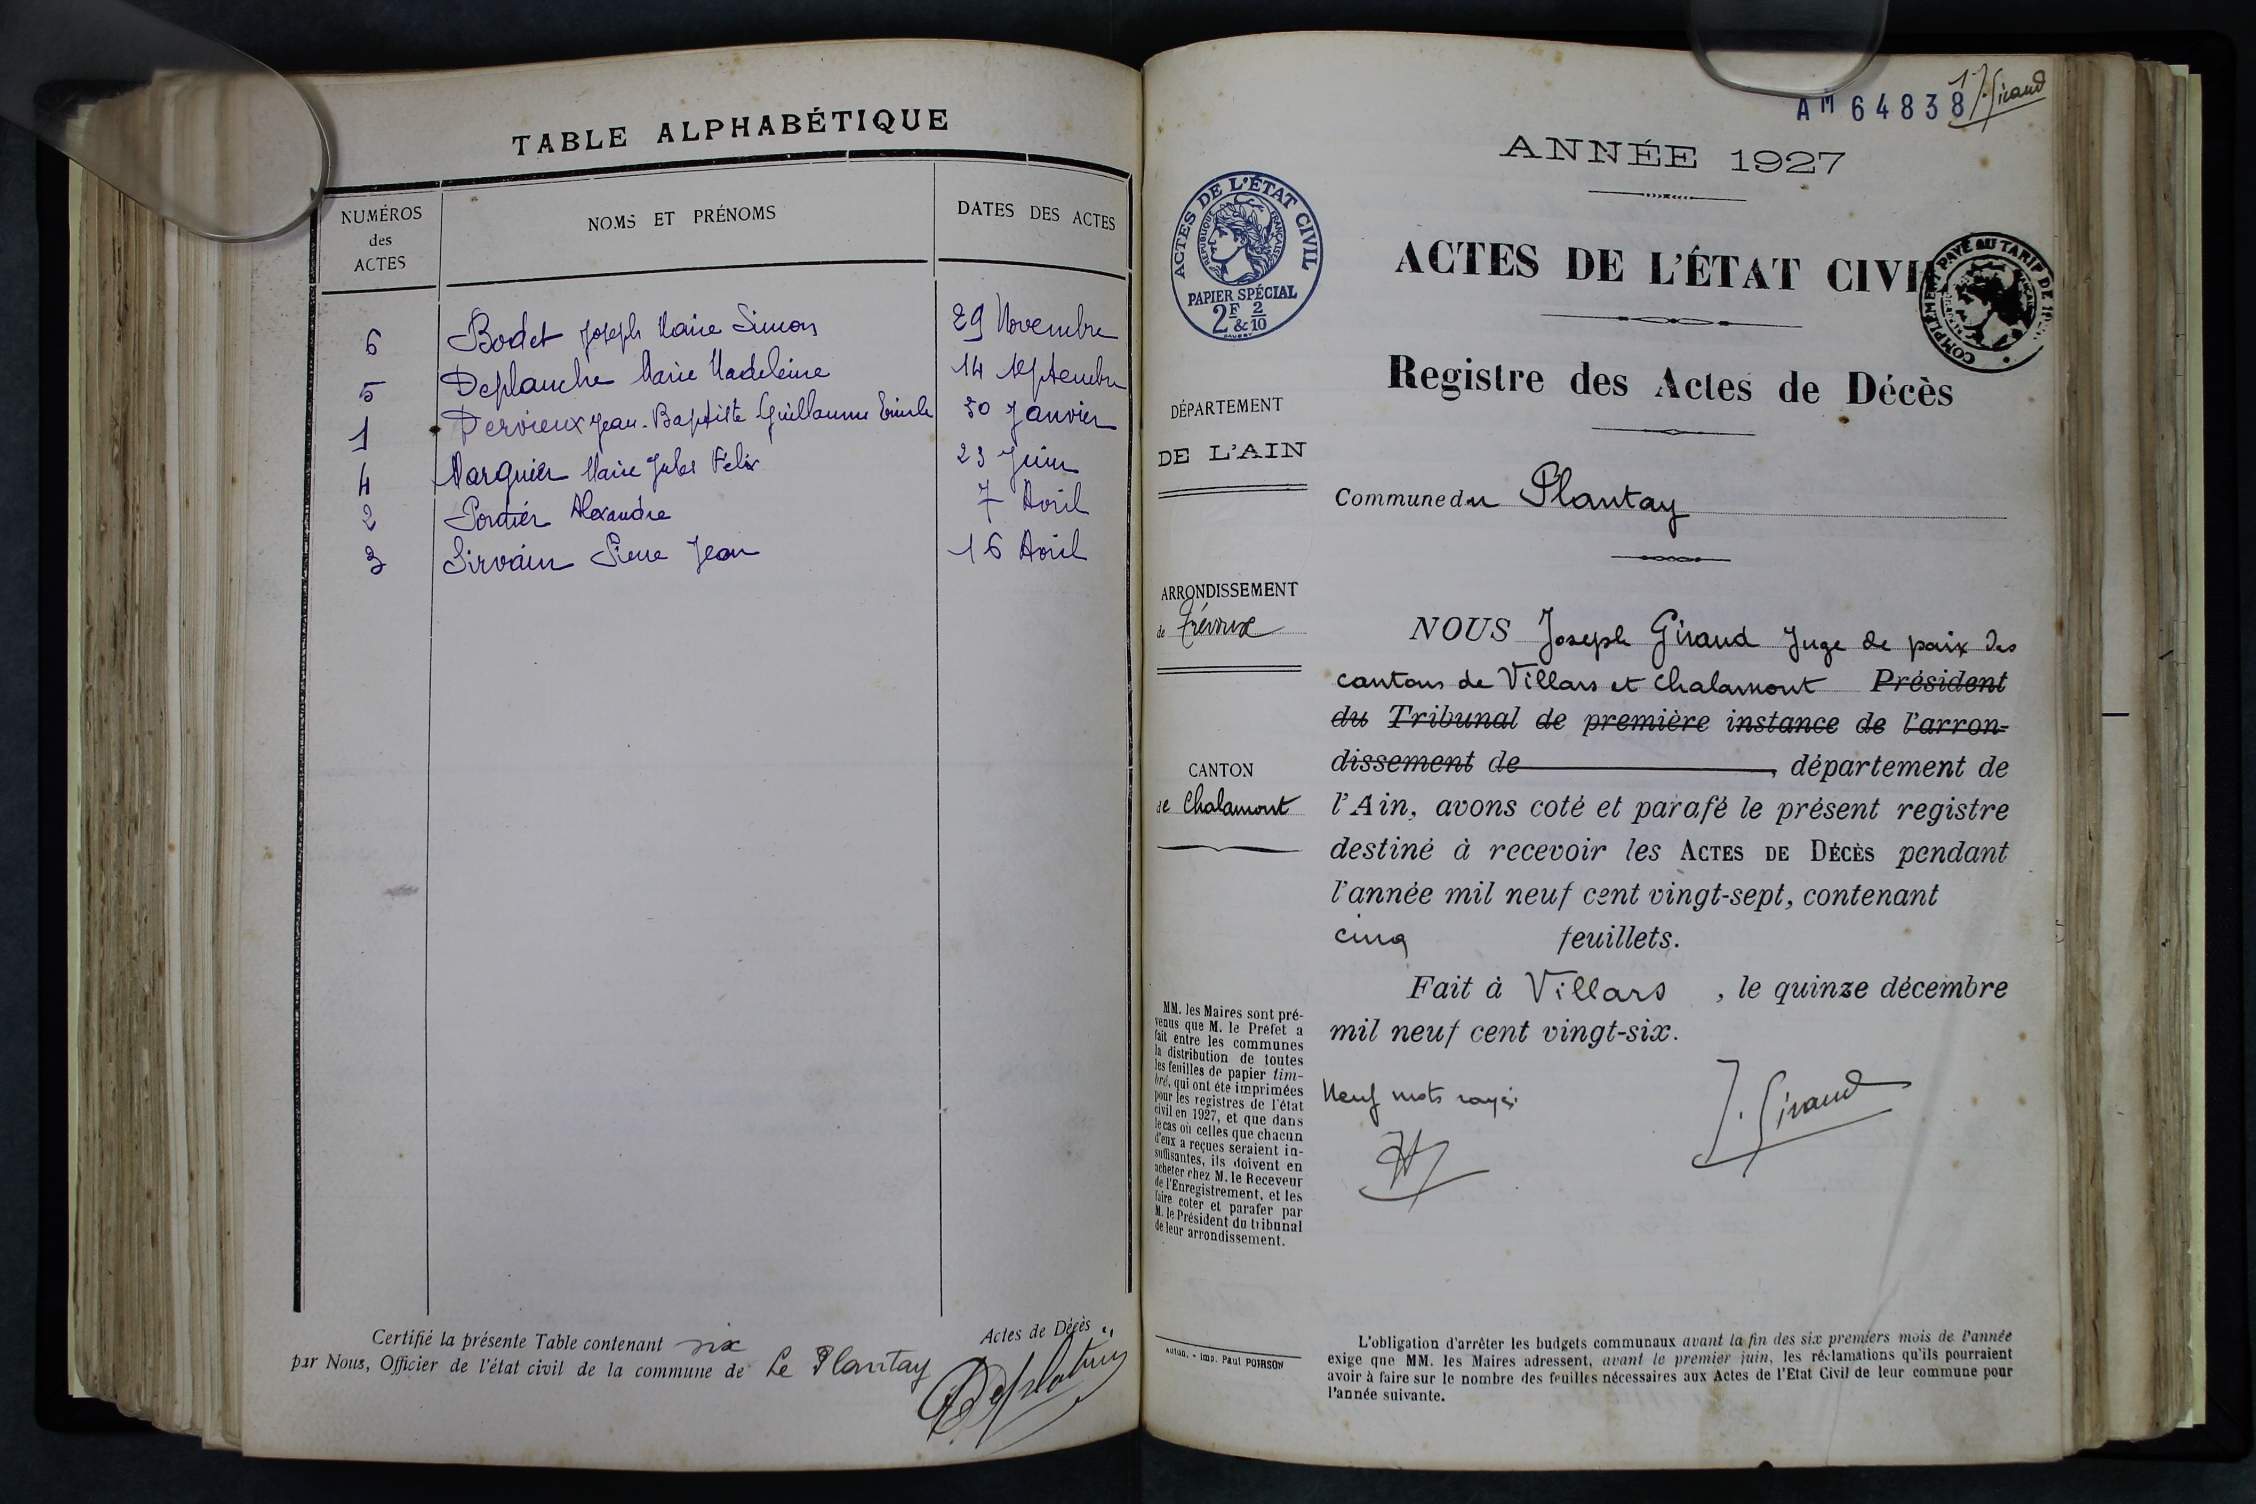 TABLE ALPHABÉTIQUE
NUMÉROS des ACTES
NOMS ET PRÉNOMS
DATES DES ACTES
6 Bodet Joseph Marie Simon 29 Novembre
5 Deplanche Marie Madeleine 14 Septembre
1 Dervieux Jean-Baptiste Guillaume 30 Janvier
4 Marguier Marie Jules Félix 23 Juin
2 Portier Alexandre 7 Avril
3 Sirvain Pierre Jean 16 Avril
Certifié la présente Table contenant six Actes de Décès
par Nous, Officier de l'état civil de la commune de Le Plantay
AM 64838
1 J. Giraud
ANNÉE 1927
ACTES DE L'ÉTAT CIVIL
RÉPUBLIQUE FRANÇAISE
PAPIER SPÉCIAL
2F & 2/10
ACTES DE L'ÉTAT CIVIL
COMPLÉMENT PAYÉ AU TARIF DE
Registre des Actes de Décès
DÉPARTEMENT
DE L'AIN
Commune du Plantay
ARRONDISSEMENT
de Trévoux
CANTON
de Chalamont
NOUS Joseph Giraud Juge de paix des
cantons de Villars et Chalamont Président
du Tribunal de première instance de l'arron-
dissement de , département de
l'Ain, avons coté et parafé le présent registre
destiné à recevoir les ACTES DE DÉCÈS pendant
l'année mil neuf cent vingt-sept, contenant
cinq feuillets.
Fait à Villars , le quinze décembre
mil neuf cent vingt-six.
Neuf mots rayés
J. Giraud
MM. les Maires sont pré-
venus que M. le Préfet a
fait entre les communes
la distribution de toutes
les feuilles de papier tim-
bré, qui ont été imprimées
pour les registres de l'état
civil en 1927, et que dans
le cas où celles que chacun
d'eux a reçues seraient in-
suffisantes, ils doivent en
acheter chez M. le Receveur
de l'Enregistrement, et les
faire coter et parafer par
M. le Président du tribunal
de leur arrondissement.
Autun. - Imp. Paul POIRSON
L'obligation d'arrêter les budgets communaux avant la fin des six premiers mois de l'année
exige que MM. les Maires adressent, avant le premier juin, les réclamations qu'ils pourraient
avoir à faire sur le nombre des feuilles nécessaires aux Actes de l'Etat Civil de leur commune pour
l'année suivante.